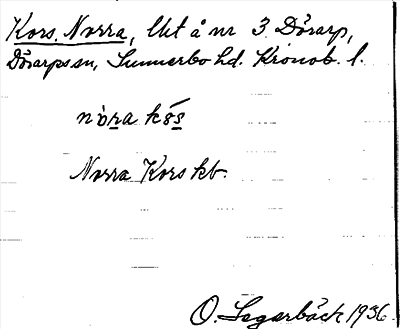 Kors, Norra, lht å nr 3 Dörarp,
Dörarps sn, Sunnerbo hd. Kronob. l.
nòra kós
Norra Kors kb.
O. Segerbäck 1936.